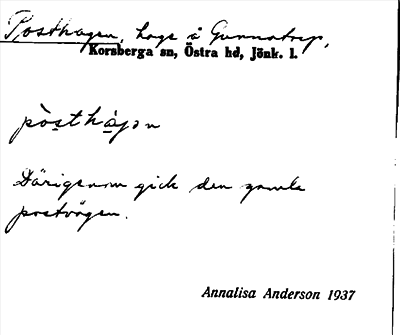 Posthagen, hage å Gunnatrp,
Korsberga sn, Östra hd, Jönk. l.
pòsthàgən
Därigenom gick den gamla
postvägen.
Annalisa Anderson 1937